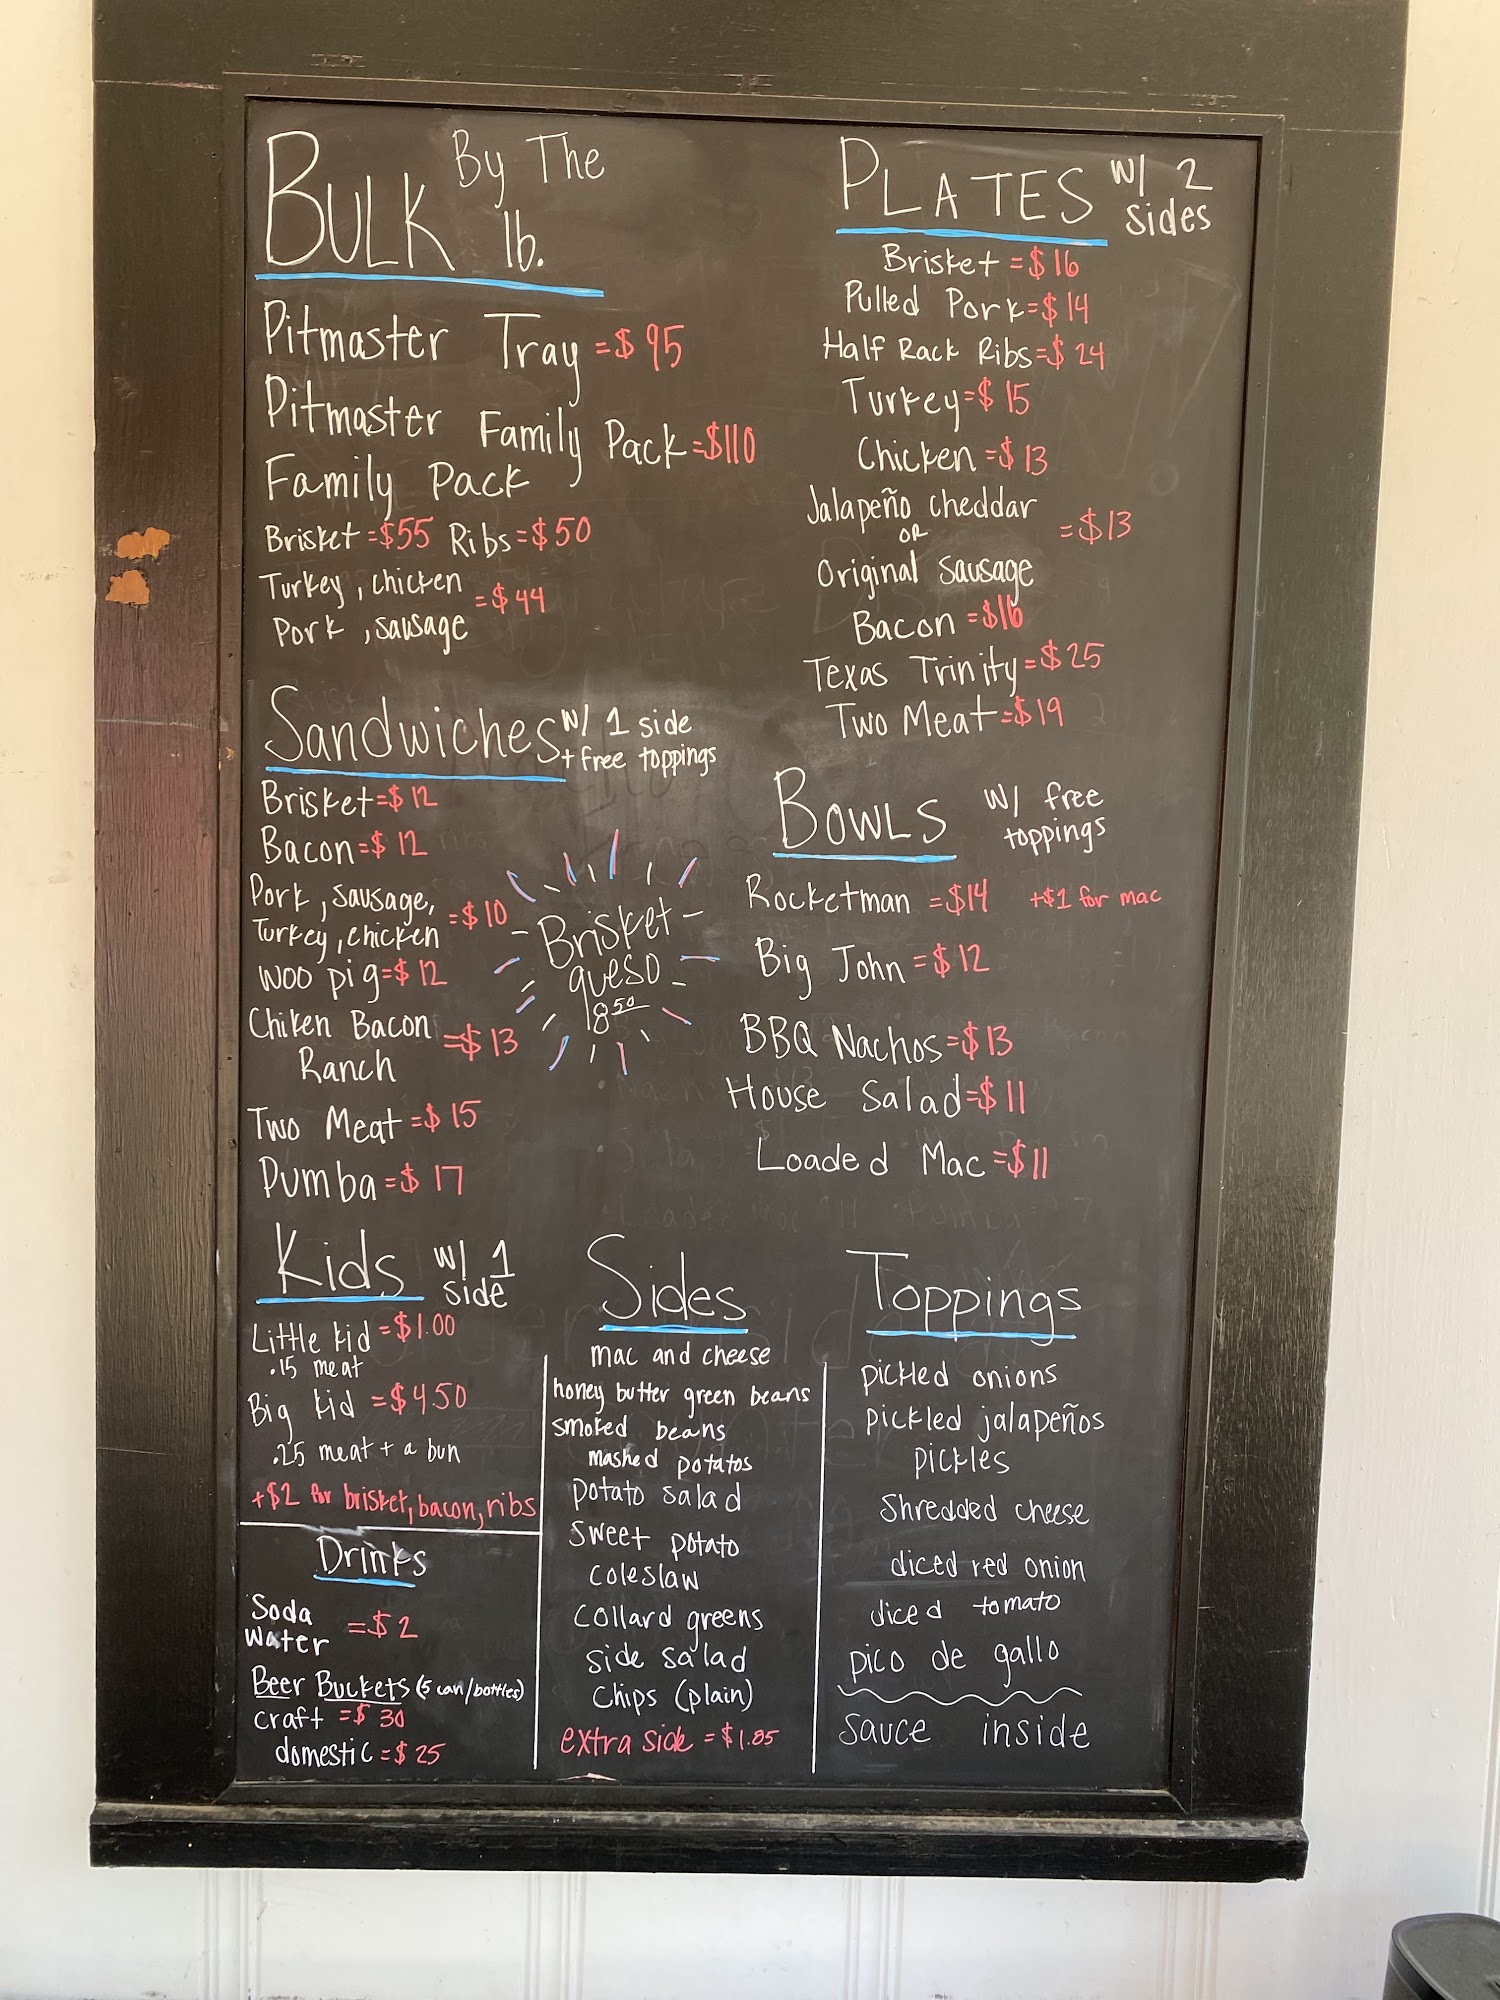 BULK By The
lb.
Pitmaster Tray =$95
Pitmaster Family Pack =$110
Family Pack
Brisket =$55 Ribs =$50
Turkey, chicken
Pork, sausage =$44
Sandwiches w/ 1 side
+ free toppings
Brisket =$12
Bacon =$12
Pork, sausage,
Turkey, chicken =$10
woo pig =$12
Chiken Bacon
Ranch =$13
Two Meat =$15
Pumba =$17
Brisket
queso
8.50
PLATES w/ 2
sides
Brisket =$16
Pulled Pork =$14
Half Rack Ribs =$24
Turkey =$15
Chicken =$13
Jalapeño cheddar
OR =$13
Original Sausage
Bacon =$16
Texas Trinity =$25
Two Meat =$19
BOWLS w/ free
toppings
Rocketman =$14 +$1 for mac
Big John =$12
BBQ Nachos =$13
House Salad =$11
Loaded Mac =$11
Kids w/ 1
side
Little kid =$1.00
.15 meat
Big kid =$4.50
.25 meat + a bun
+$2 for brisket, bacon, ribs
Drinks
Soda
Water =$2
Beer Buckets (5 can/bottles)
craft =$30
domestic =$25
Sides
mac and cheese
honey butter green beans
smoked beans
mashed potatos
potato salad
sweet potato
coleslaw
collard greens
side salad
chips (plain)
extra side =$1.85
Toppings
pickled onions
pickled jalapeños
pickles
shredded cheese
diced red onion
diced tomato
pico de gallo
sauce inside